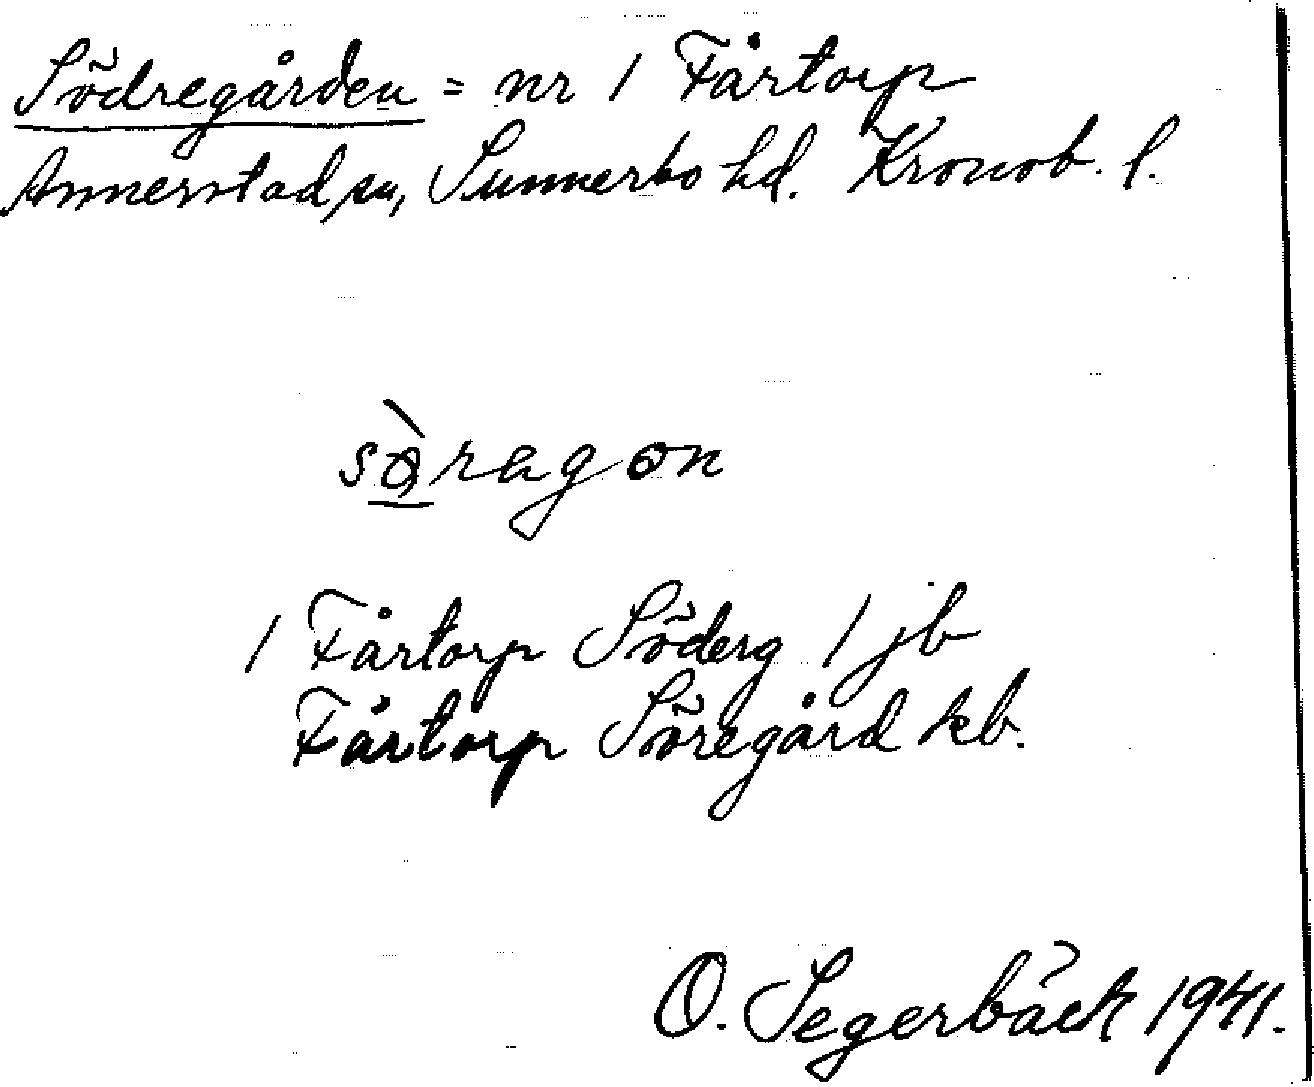 Södregården = nr 1 Fårtorp
Annerstad sn, Sunnerbo hd. Kronob. l.
sø̀ragon
1 Fårtorp Söderg 1 jb
Fårtorp Söregård kb.
O. Segerbäck 1941.